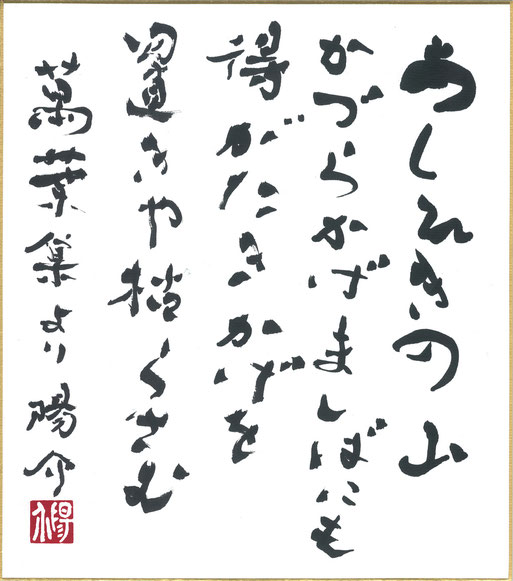 あしひきの山
かづらかげましばにも
得がたきかげを
置きや枯らさむ
萬葉集より 陽介